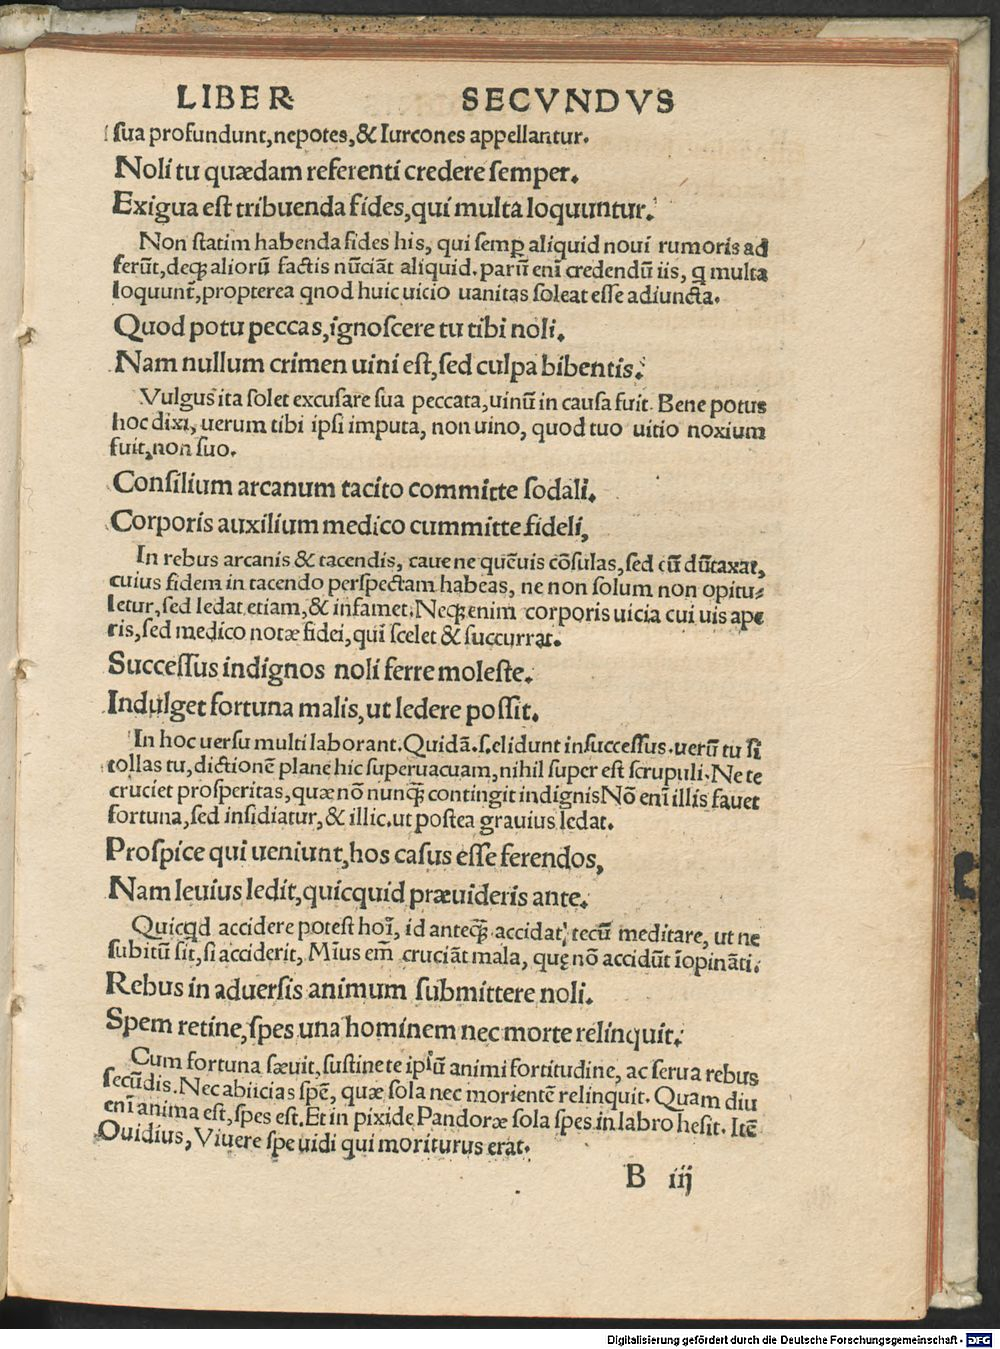 LIBER SECVNDVS
ſua profundunt,nepotes,& Iurcones appellantur.
Noli tu quædam referenti credere ſemper.
Exigua eſt tribuenda fides,qui multa loquuntur.
Non ſtatim habenda fides his, qui ſemꝑ aliquid noui rumoris ad
ferũt,deqꝫ aliorũ factis nũciãt aliquid. parũ enĩ credendũ iis, q multa
loquunt᷑,propterea qnod huic uicio uanitas ſoleat eſſe adiuncta.
Quod potu peccas,ignoſcere tu tibi noli.
Nam nullum crimen uini eſt,ſed culpa bibentis.
Vulgus ita ſolet excuſare ſua peccata,uinũ in cauſa fuit. Bene potus
hoc dixi, uerum tibi ipſi imputa, non uino, quod tuo uitio noxium
fuit,non ſuo.
Conſilium arcanum tacito committe ſodali.
Corporis auxilium medico cummitte fideli,
In rebus arcanis & tacendis, caue ne quẽuis cõſulas,ſed cũ dũtaxat,
cuius fidem in tacendo perſpectam habeas, ne non ſolum non opitu-
letur,ſed ledat etiam,& infamet.Neqꝫ enim corporis uicia cui uis ape
ris,ſed medico notæ fidei,qui ſcelet & ſuccurrat.
Succeſſus indignos noli ferre moleſte.
Indulget fortuna malis,ut ledere poſſit.
In hoc uerſu multi laborant.Quidã.ſ.elidunt inſucceſſus.uerũ tu ſi
tollas tu,dictionẽ plane hic ſuperuacuam,nihil ſuper eſt ſcrupuli.Ne te
cruciet proſperitas,quæ nõ nunqꝫ̃ contingit indignisNõ enĩ illis fauet
fortuna,ſed inſidiatur,& illic.ut poſtea grauius ledat.
Proſpice qui ueniunt,hos caſus eſſe ferendos,
Nam leuius ledit,quicquid præuideris ante.
Quicqd accidere poteſt hoĩ, id anteqꝫ̃ accidat, tecũ meditare, ut ne
ſubitũ ſit,ſi acciderit, Mĩus em̃ cruciãt mala, quę nõ accidũt ĩopinãti.
Rebus in aduerſis animum ſubmittere noli.
Spem retine,ſpes una hominem nec morte relinquit.
Cum fortuna ſæuit,ſuſtine te ipſũ animi fortitudine, ac ſerua rebus
ſecũdis.Nec abiicias ſpẽ, quæ ſola nec morientẽ relinquit. Quam diu
enĩ anima eſt,ſpes eſt.Et in pixide Pandoræ ſola ſpes in labro heſit. Itẽ
Ouidius, Viuere ſpe uidi qui moriturus erat.
B iij
Digitalisierung gefördert durch die Deutsche Forschungsgemeinschaft - DFG